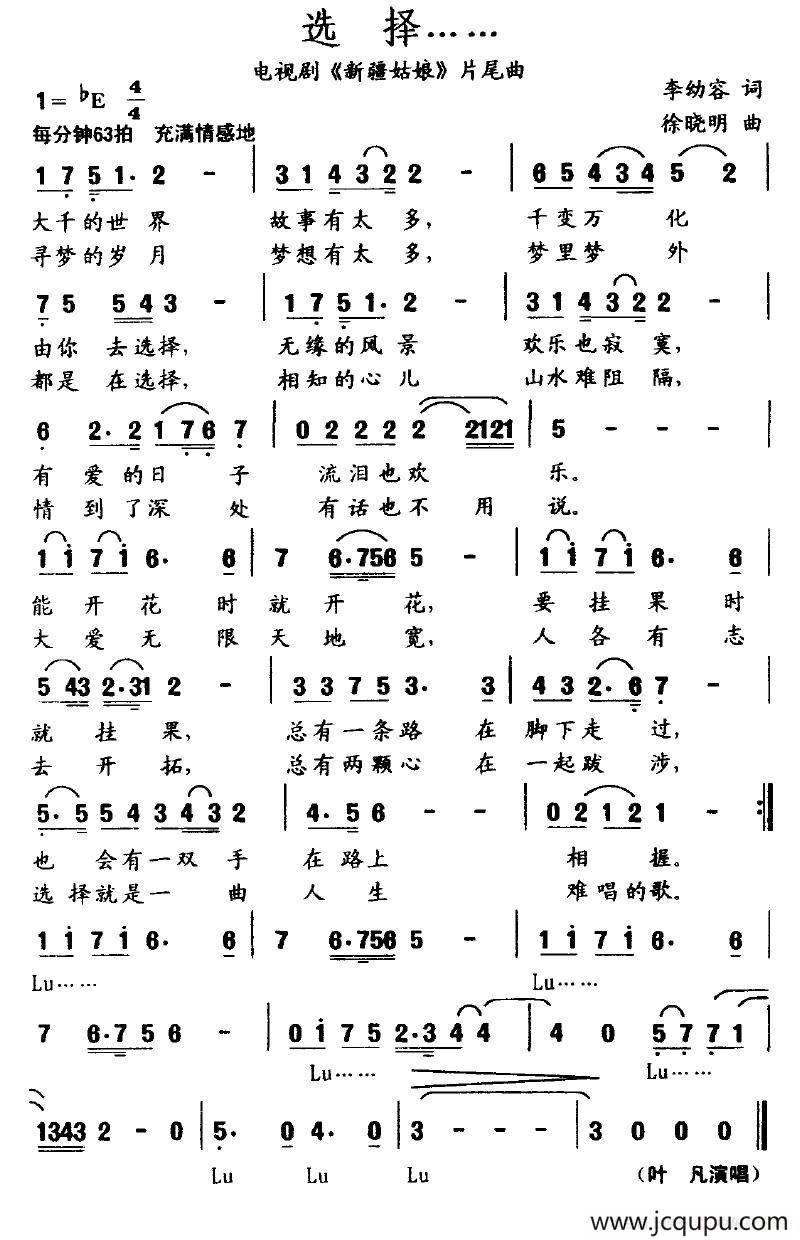 选 择……
电视剧《新疆姑娘》片尾曲
1=♭E 4/4
李幼容 词
每分钟63拍 充满情感地
徐晓明 曲
1 7 5 1· 2 - | 3 1 4 3 2 2 2 - | 6 5 4 3 3 4 5 2 |
大千的世界 故事有太多, 千变万化
寻梦的岁月 梦想有太多, 梦里梦外
7 5 5 4 3 - | 1 7 5 1· 2 - | 3 1 4 3 2 2 - |
由你去选择, 无缘的风景 欢乐也寂寞,
都是在选择, 相知的心儿 山水难阻隔,
6 2· 2 1 7 6 7 | 0 2 2 2 2 2 2121 | 5 - - - |
有爱的日子 流泪也欢 乐。
情到了深处 有话也不用 说。
1 i 7 i 6· 6 | 7 6·756 5 - | 1 i 7 i 6· 6 |
能开花时就开花, 要挂果时
大爱无限天地宽, 人各有志
5 43 2·31 2 - | 3 3 7 5 3· 3 | 4 3 2· 6 7 - |
就挂果, 总有一条路在脚下走过,
去开拓, 总有两颗心在一起跋涉,
5· 5 5 4 3 4 3 2 | 4· 5 6 - - | 0 2 1 2 1 - :‖
也会有一双手在路上 相握。
选择就是一曲人生 难唱的歌。
1 i 7 i 6· 6 | 7 6·756 5 - | 1 i 7 i 6· 6 |
Lu…… Lu……
7 6·7 5 6 - | 0 i 7 5 2·3 4 4 | 4 0 5 7 7 1 |
Lu…… Lu……
1343 2 - 0 | 5· 0 4· 0 | 3 - - - | 3 0 0 0 ‖
Lu Lu Lu (叶 凡演唱)
www.jcqupu.com